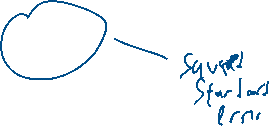 Squared
Standard
Error